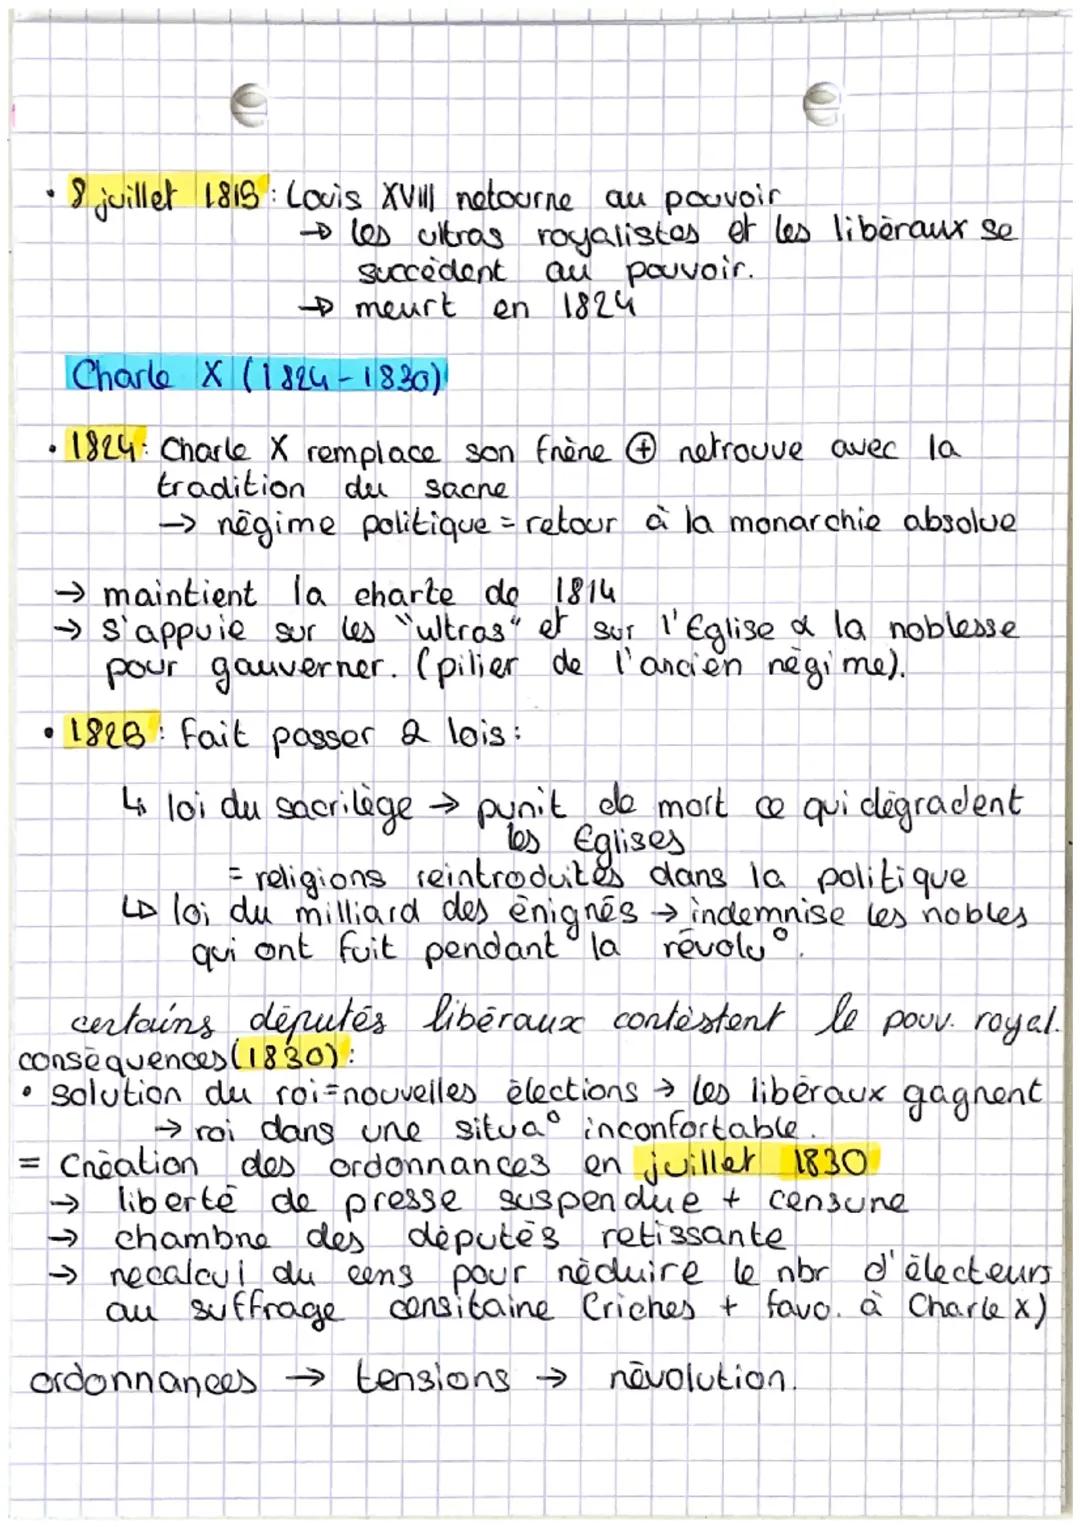 • 8 juillet 1815 : Louis XVIII retourne au pouvoir
→ les ultras royalistes et les libéraux se
succèdent au pouvoir.
→ meurt en 1824
Charle X (1824-1830)
• 1824 : Charle X remplace son frère ⊕ retrouve avec la
tradition du sacre
→ régime politique = retour à la monarchie absolue
→ maintient la charte de 1814
→ s'appuie sur les "ultras" et sur l'Eglise & la noblesse
pour gauverner. (pilier de l'ancien régime).
• 1826 : Fait passer 2 lois :
↳ loi du sacrilège → punit de mort ce qui dégradent
les Eglises
= religions reintroduites dans la politique
↳ loi du milliard des énignés → indemnise les nobles
qui ont fuit pendant la révolu°.
certains députés libéraux contestent le pouv. royal.
conséquences (1830) :
• solution du roi = nouvelles élections → les libéraux gagnent
→ roi dans une situa° inconfortable.
= Création des ordonnances en juillet 1830
→ liberté de presse suspendue + censure
→ chambre des députés retissante
→ recalcul du cens pour réduire le nbr d'électeurs
au suffrage censitaire (riches + favo. à Charle X)
ordonnances → tensions → révolution.